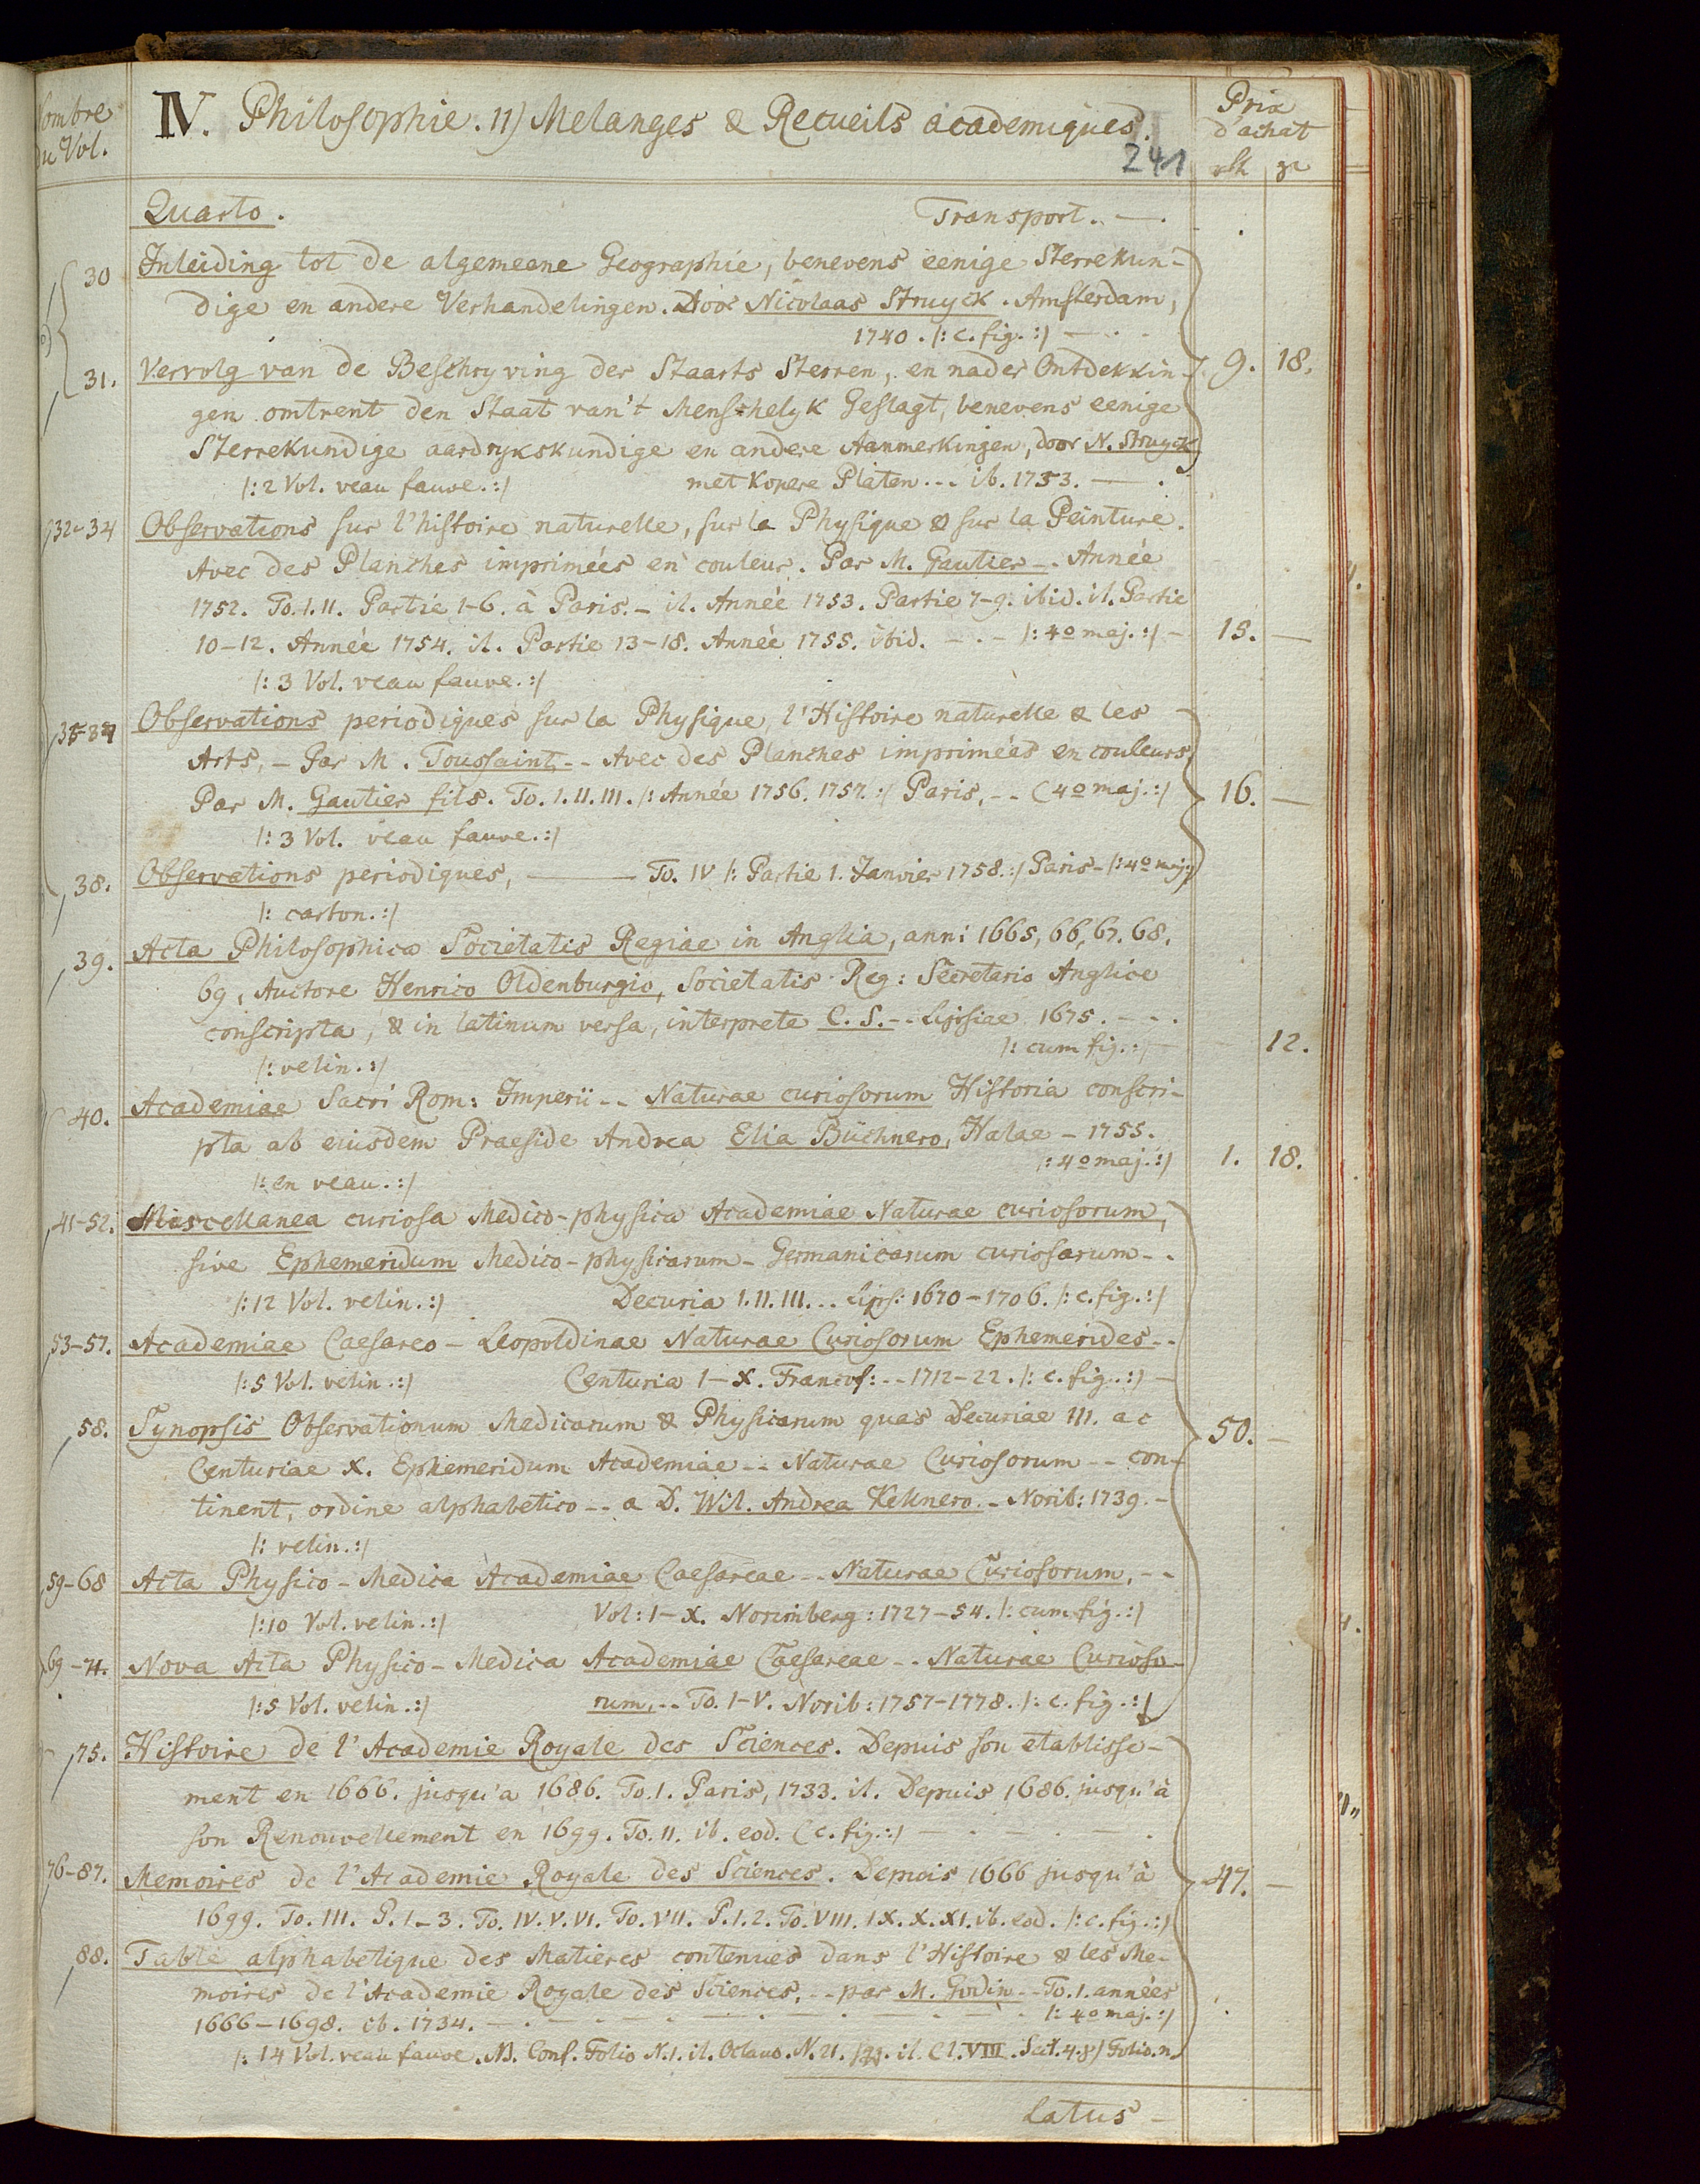 Nombre
du Vol.
IV. Philosophie. 11) Melanges & Recueils academiques.
241
Prix
d'achat
rth gr
Quarto. Transport. —.
30 Inleiding tot de algemeene Geographie, benevens eenige Sterrekun-
dige en andere Verhandelingen. Door Nicolaas Struyck. Amsterdam,
1740. /: c. fig. :/ — . .
31. Vervolg van de Beschryving der Staarts Sterren, en nader Ontdekkin- 9. 18.
gen omtrent den Staat van't Menschelyk Geslagt, benevens eenige
Sterrekundige aardrykskundige en andere Aanmerkingen, door N. Struyck
/: 2 Vol. veau fauve. :/ met Kopere Platen... ib. 1753. — .
32-34 Observations sur l'histoire naturelle, sur la Physique & sur la Peinture.
Avec des Planches imprimées en couleur. Par M. Gautier -. Année
1752. To. I. II. Partie 1-6. à Paris. - it. Année 1753. Partie 7-9. ibid. it. Partie
10-12. Année 1754. it. Partie 13-18. Année 1755. ibid. - . - /: 4o maj. :/ - 15. —
/: 3 Vol. veau fauve. :/
Observations periodiques sur la Physique, l'Histoire naturelle & les
Arts, - Par M. Toussaint -- Avec des Planches imprimées en couleurs,
Par M. Gautier fils. To. I. II. III. /: Année 1756. 1757. :/ Paris, -- (4o maj. :/ 16. —
/: 3 Vol. veau fauve. :/
38. Observations periodiques, ——— To. IV /: Partie 1. Janvier 1758. :/ Paris - /: 4o maj. :/
/: carton. :/
39. Acta Philosophica Societatis Regiae in Anglia, anni 1665, 66, 67. 68.
69, Auctore Henrico Oldenburgio, Societatis Reg: Secretario Anglice
conscripta, & in latinum versa, interprete C. S. -- Lipsiae 1675. - - .
/: cum fig. :/ — 12.
/: velin. :/
40. Academiae Sacri Rom: Imperii -- Naturae curiosorum Historia conscri-
pta ab eiusdem Praeside Andrea Elia Büchnero, Halae - 1755.
/: 4o maj. :/ 1. 18.
/: en veau. :/
41-52. Miscellanea curiosa Medico-physica Academiae Naturae curiosorum,
sive Ephemeridum Medico-physicarum - Germanicarum curiosarum - .
/: 12 Vol. velin. :/ Decuria I. II. III... Lips: 1670-1706. /: c. fig. :/
53-57. Academiae Caesareo - Leopoldinae Naturae Curiosorum Ephemerides --
/: 5 Vol. velin. :/ Centuria I-X. Francof: -- 1712-22. /: c. fig. :/ —
58. Synopsis Observationum Medicarum & Physicarum quas Decuriae III. ac 50. —
Centuriae X. Ephemeridum Academiae -- Naturae Curiosorum -- con-
tinent, ordine alphabetico -- a D. Wil. Andrea Kellnero. - Norib: 1739. -
/: velin. :/
59-68 Acta Physico-Medica Academiae Caesareae -- Naturae Curiosorum, --
/: 10 Vol. velin. :/ Vol: I-X. Norimberg: 1727-54. /: cum fig. :/
69-74. Nova Acta Physico-Medica Academiae Caesareae -- Naturae Curioso-
/: 5 Vol. velin. :/ rum, -- To. I-V. Norib: 1757-1778. /: c. fig. :/
75. Histoire de l'Academie Royale des Sciences. Depuis son etablisse-
ment en 1666. jusqu'a 1686. To. I. Paris, 1733. it. Depuis 1686. jusqu'à
son Renouvellement en 1699. To. II. ib. eod. (c. fig. :/ — . — . — .
76-87. Memoires de l'Academie Royale des Sciences. Depuis 1666 jusqu'à 47. —
1699. To. III. P. 1-3. To. IV. V. VI. To. VII. P. 1. 2. To. VIII. IX. X. XI. ib. eod. /: c. fig. :/
88. Table alphabetique des Matieres contenues dans l'Histoire & les Me-
moires de l'Academie Royale des Sciences, -- par M. Godin -- To. I. années
1666-1698. ib. 1734. — . — . — /: 4o maj. :/
/: 14 Vol. veau fauve. NB. Conf. Folio N. 1. it. Octavo. N. 21. it. Cl. VIII. Sect. 4. Folio. n
Latus —